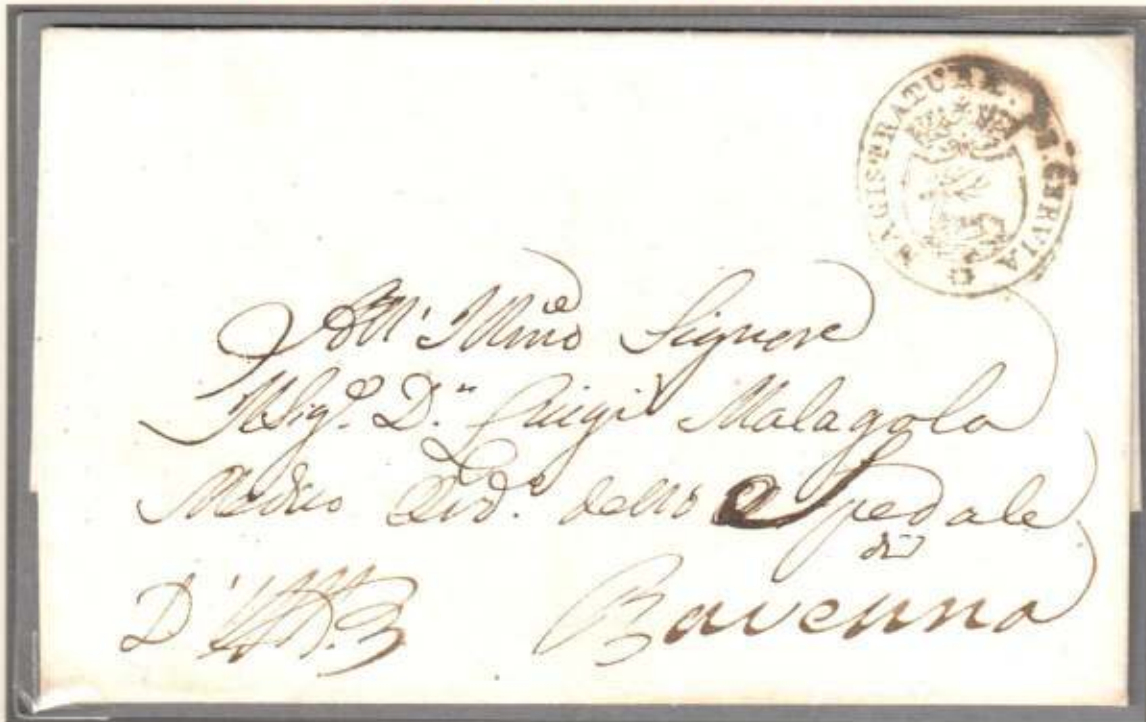 MAGISTRATURA DI CERVIA
All' Illmo Signore
Il Sig.e D.n Luigi Malagola
Medico dello Spedale
di
Ravenna